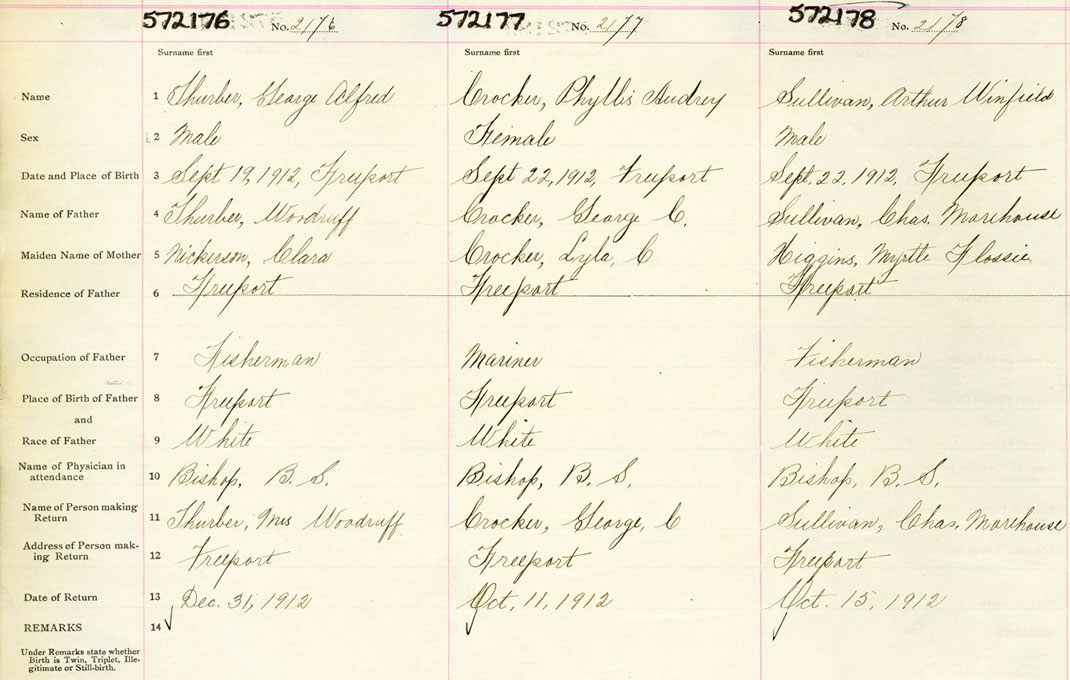 572176 No. 2176 572177 No. 2177 572178 No. 2178
Surname first Surname first Surname first
Name 1 Thurber, George Alfred Crocker, Phyllis Audrey Sullivan, Arthur Winfield
Sex 2 Male Female Male
Date and Place of Birth 3 Sept 19, 1912, Freeport Sept 22, 1912, Freeport Sept. 22, 1912, Freeport
Name of Father 4 Thurber, Woodruff Crocker, George C. Sullivan, Chas. Morehouse
Maiden Name of Mother 5 Nickerson, Clara Crocker, Lyla, C Higgins, Myrtle Flossie
Residence of Father 6 Freeport Freeport Freeport
Occupation of Father 7 Fisherman Mariner Fisherman
Place of Birth of Father 8 Freeport Freeport Freeport
and
Race of Father 9 White White White
Name of Physician in
attendance 10 Bishop, B. S. Bishop, B. S. Bishop, B. S.
Name of Person making
Return 11 Thurber, Mrs Woodruff Crocker, George, C Sullivan, Chas. Morehouse
Address of Person mak-
ing Return 12 Freeport Freeport Freeport
Date of Return 13 Dec. 31, 1912 Oct. 11, 1912 Oct. 15, 1912
REMARKS 14
Under Remarks state whether
Birth is Twin, Triplet, Ille-
gitimate or Still-birth.